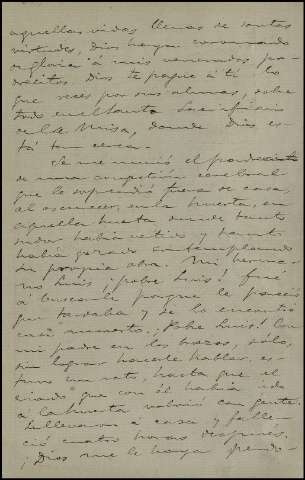 aquellas vidas llenas de santas
virtudes, Dios haya coronado
de gloria á mis venerados pa-
drecitos. Dios te pague á tí lo
que reces por sus almas, sobre
todo en el Santo Sacrificio
de la Misa, donde Dios es-
tá tan cerca.
Se me murió el padrecito
de una congestión cerebral
que le sorprendió fuera de casa,
al oscurecer, en la huerta, en
aquella huerta donde tanto
sudor había vertido y tanto
había gozado contemplando
su propia obra. Mi herma-
no Luis ¡pobre Luis! fué
á buscarle porque le pareció
que tardaba y se lo encontró
casi muerto. ¡Pobre Luis! Con
mi padre en los brazos, sólo,
sin lograr hacerle hablar, es-
tuvo un rato, hasta que el
criado que con él había ido
á la huerta volvió con gente.
Lo llevaron á casa y falle-
ció cuatro horas después.
¡Dios me le haya perdo-